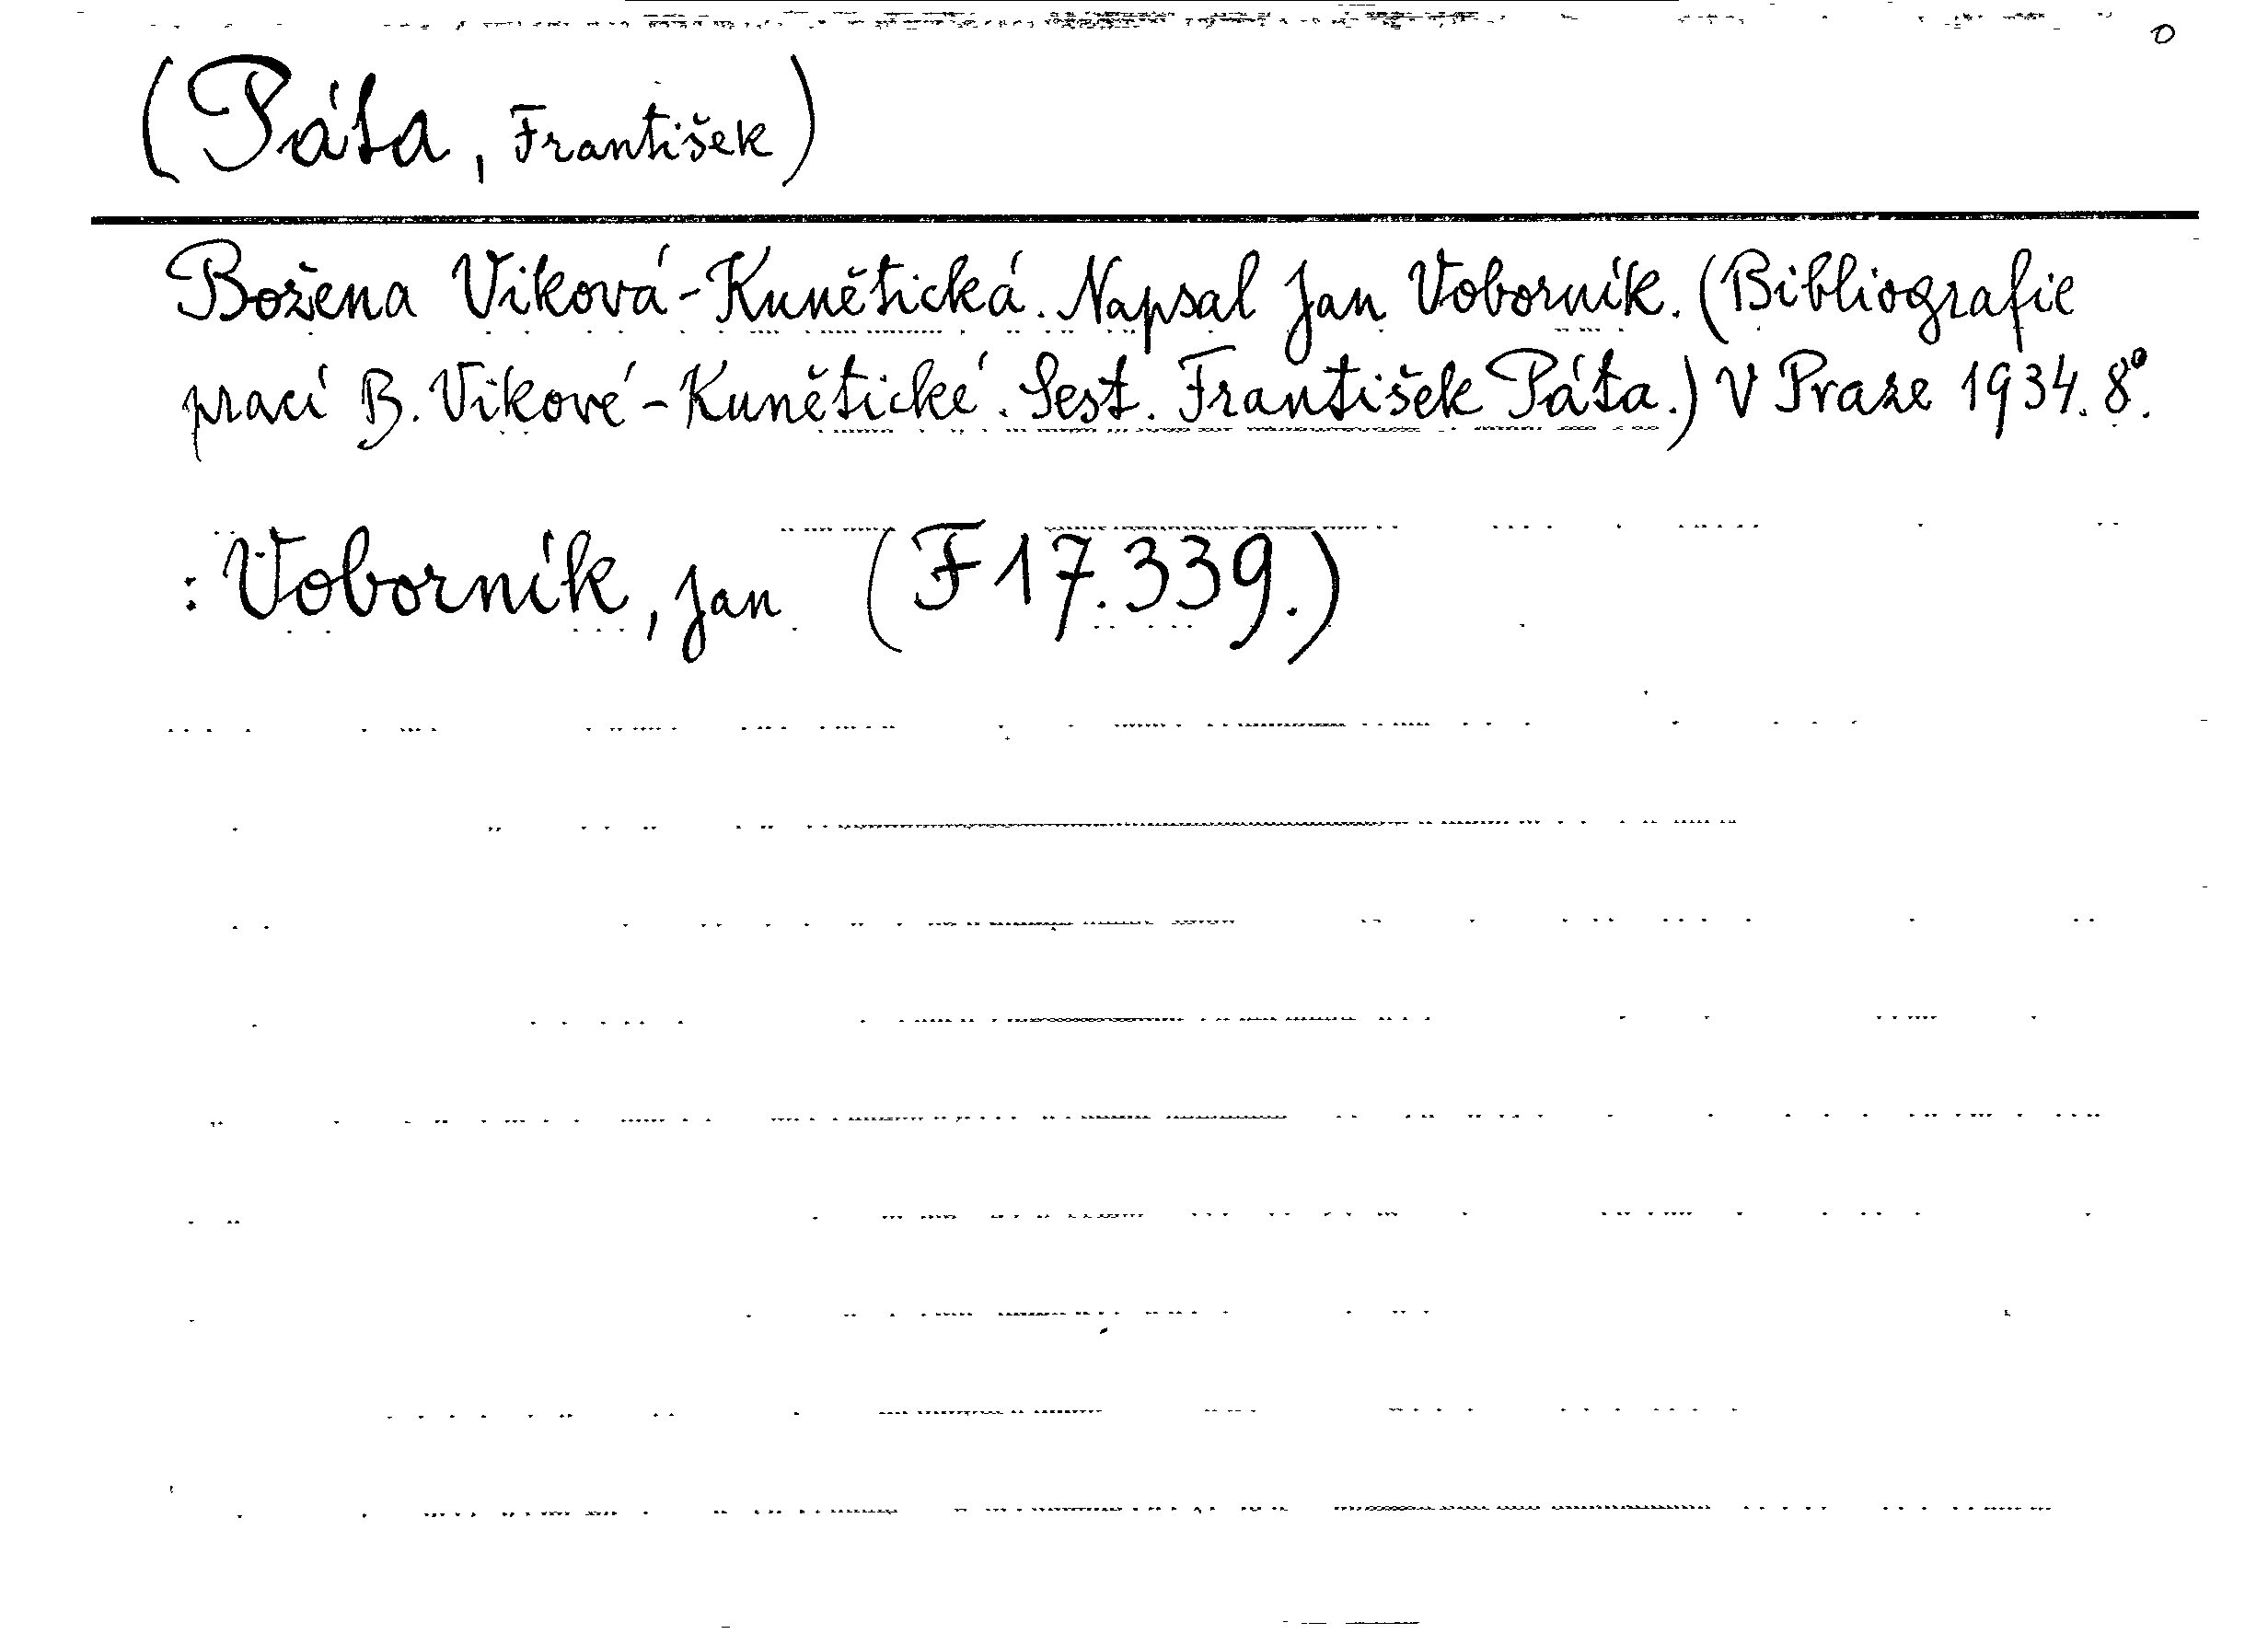 o
(Páta, František)
Božena Viková-Kunětická. Napsal Jan Voborník. (Bibliografie
prací B. Vikové-Kunětické. Sest. František Páta.) V Praze 1934. 8°.
: Voborník, Jan (F 17.339.)